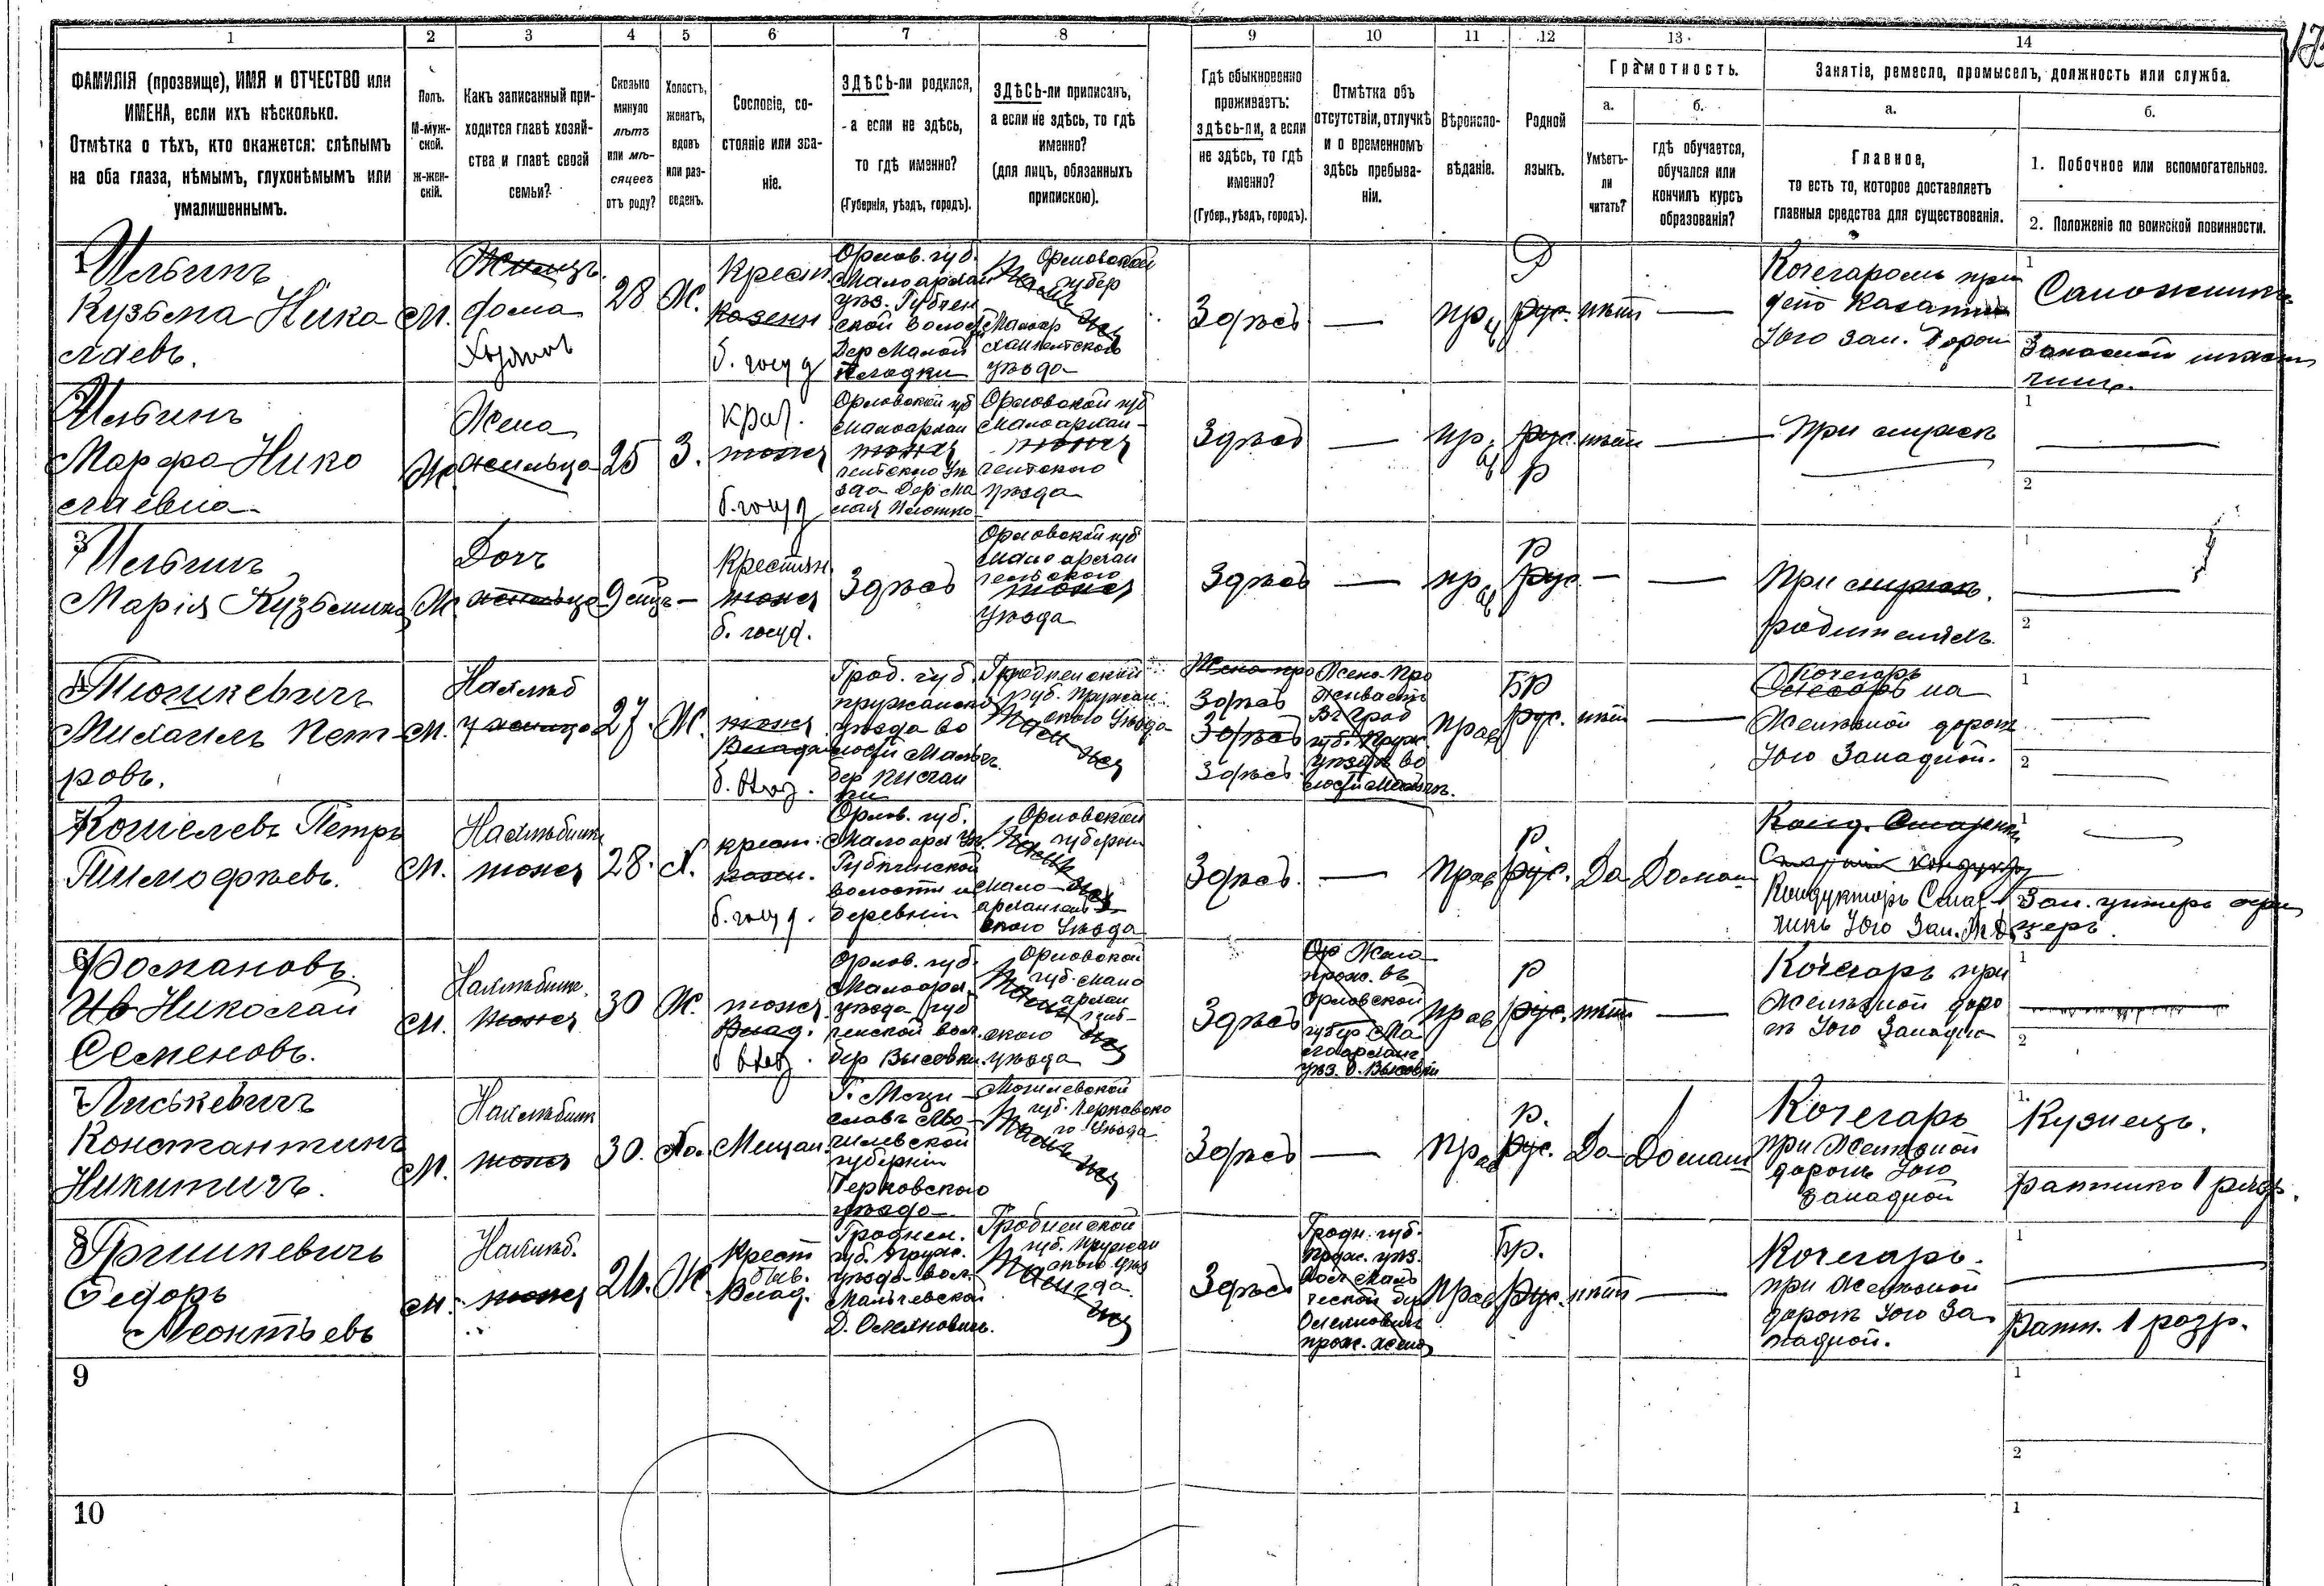 1 2 3 4 5 6 7 8 9 10 11 12 13 14
ФАМИЛІЯ (прозвище), ИМЯ и ОТЧЕСТВО или
ИМЕНА, если ихъ нѣсколько.
Отмѣтка о тѣхъ, кто окажется: слѣпымъ
на оба глаза, нѣмымъ, глухонѣмымъ или
умалишеннымъ.
Полъ.
М-муж-
ской.
ж-жен-
скій.
Какъ записанный при-
ходится главѣ хозяй-
ства и главѣ своей
семьи?
Сколько
минуло
лѣтъ
или мѣ-
сяцевъ
отъ роду?
Холостъ,
женатъ,
вдовъ
или раз-
веденъ.
Сословіе, со-
стояніе или зва-
ніе.
ЗДѢСЬ-ли родился,
а если не здѣсь,
то гдѣ именно?
(Губернія, уѣздъ, городъ).
ЗДѢСЬ-ли приписанъ,
а если не здѣсь, то гдѣ
именно?
(для лицъ, обязанныхъ
припискою).
Гдѣ обыкновенно
проживаетъ:
здѣсь-ли, а если
не здѣсь, то гдѣ
именно?
(Губер., уѣздъ, городъ).
Отмѣтка объ
отсутствіи, отлучкѣ
и о временномъ
здѣсь пребыва-
ніи.
Вѣроиспо-
вѣданіе.
Родной
языкъ.
Грамотность.
а.
Умѣетъ-
ли
читать?
б.
гдѣ обучается,
обучался или
кончилъ курсъ
образованія?
Занятіе, ремесло, промыселъ, должность или служба.
а.
Главное,
то есть то, которое доставляетъ
главныя средства для существованія.
б.
1. Побочное или вспомогательное.
2. Положеніе по воинской повинности.
1
Ильинъ
Кузьма Нико
лаевъ.
М.
Жилецъ.
дома
28
Ж.
Крест.
б. госуд
Орлов. губ.
Малоархан
уѣз. Губчен
ской волост
Дер Малой
Плодки
Орловской
губер
Малоар
хангелтского
уѣзда
Здѣсь
—
пр
р
рус.
нѣт
—
Кочегаромъ при
депо Казатинъ
Юго Зап. Дорог
1
Сапожникъ
Ильинъ
Марфа Нико
лаевна
Ж.
Жена
жильца
25
З.
Крес.
тоже
б. госуд
Орловской губ
Малоархан
тоже
гельского Уѣ
зда Дер Ма
лая Плотко
Орловской губ
Малоархан-
тоже
гелтского
Уѣзда
Здѣсь
—
пр.
рус.
р
нѣт
—
При мужѣ
1
2
3
Ильинъ
Марія Кузьмина
Ж.
Дочь
жильца
9 мѣц
—
Крестьян
тоже
б. госуд.
Здѣсь
Орловской губ
Мало архан
гельского
тоже
Уѣзда
Здѣсь
—
пр
р
рус.
—
—
При мужѣ.
родителях.
1
2
4
Тюшкевичъ
Михаилъ Пет
ровъ.
М.
Нахлѣб
у жильца
27.
Ж.
тоже
б. влад.
Грод. губ.
пружанско
уѣзда во
лости Мальч.
дер
Гродненской
губ. Пружан
ского Уѣзда
Жена про
Здѣсь
Здѣсь
Здѣсь
Жена Про
живаетъ
Въ Грод
губ. Пруж.
уѣздѣ во
лости Мальч.
прав
БР
рус.
нѣт
—
Кочегаръ
Слесарь на
Желѣзной дорог
Юго Западной.
1
2
5
Кошелевъ Петръ
Тимофѣевъ.
М.
Нахлѣбник
тоже
28.
Х.
крест.
б. госуд.
Орлов. губ.
Малоарх Уѣ.
Губчинской
волости и
деревни
Орловской
губерни
Мало-
архангель
ского Уѣзда
Здѣсь.
—
прав
р.
рус.
Да
Домаш
Старшій кондуктор
Кондукторъ Стар
шій Юго Зап. Ж. Д.
1
2
Зап. унтеръ офи
церъ.
6
Фомановъ.
Николай
Семеновъ.
М.
Нахлѣбник.
тоже
30
Ж.
тоже
Влад.
б влад.
Орлов. губ.
Малоарх.
уѣзда губ
ченской вол.
дер Высовки.
Орловской
губ. Мало
архан
гель-
ского
уѣзда
Здѣсь
Ор Жена
прож. въ
Орловской
губер Ма
лоарханг.
уѣз. д. Высовки
прав
р
рус.
нѣт
—
Кочегаръ при
Желѣзной доро
гѣ Юго Западн
1
2
7
Лиськевичъ
Константинъ
Никитичъ.
М.
Нахлѣбник
тоже
30.
Хо.
Мещан.
Г. Мсти-
славъ Мо-
гилевской
губерніи
Черковского
уѣзда
Могилевской
губ. Черковско
го Уѣзда
Здѣсь
—
прав
р.
рус.
Да
Домаш
Кочегаръ
при Желѣзной
дорогѣ Юго
Западной
1.
Кузнецъ.
ратника 1 разр.
8
Гришкевичъ
Федоръ
Леонтьевъ
М.
Нахлѣб.
тоже
26.
Ж.
Крест
быв.
влад.
Гроднен.
губ. Пруж.
уѣзда вол.
Мальчевской
Д. Осекновичъ.
Гродненской
губ. Пружан
ского уѣз
да
Здѣсь
Гродн. губ.
пруж. уѣз.
Вол Маль
ческой дер
прож. жена
прав
Бр.
рус.
нѣт
—
Кочегаръ.
при Желѣзной
дорогѣ Юго За
падной.
1
Ратн. 1 разр.
9
1
2
10
1